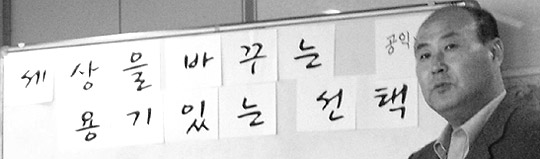 세상을 바꾸는 공익
용기있는 선택